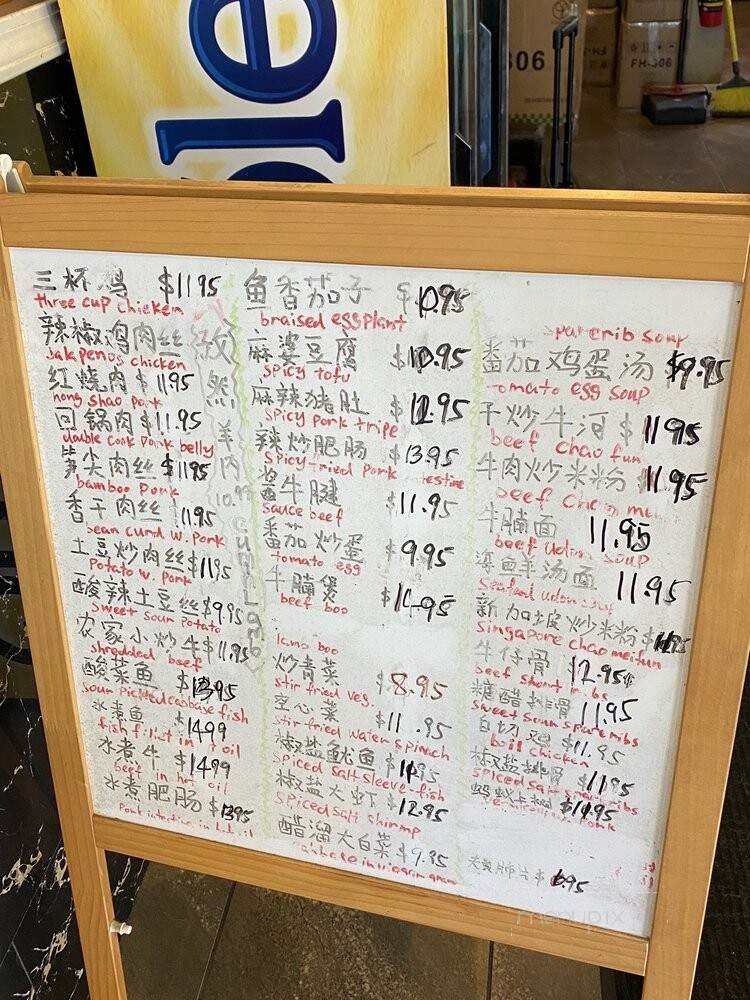 ple
306
FH-306
三杯鸡 $11.95
three cup chicken
辣椒鸡肉丝
Jalapenos chicken
红烧肉 $11.95
hong shao pork
回锅肉 $11.95
double cook pork belly
笋尖肉丝 $11.95
bamboo pork
香干肉丝 11.95
bean curd w. pork
土豆炒肉丝 $11.95
Potato w. pork
酸辣土豆丝 $9.95
sweet sour potato
农家小炒牛 $11.95
shredded beef
酸菜鱼
sour pickled cabbase fish
水煮鱼 $14.99
fish fillet in t oil
水煮牛 $14.99
beef in hot oil
水煮肥肠
Pork intestine in hot oil
孜然羊肉
10.
cumin Lamb
鱼香茄子 $10.95
braised eggplant
麻婆豆腐 $10.95
spicy tofu
麻辣猪肚
spicy pork tripe
辣炒肥肠 $13.95
spicy fried pork testine
酱牛腱 $11.95
sauce beef
番茄炒蛋 $9.95
tomato egg
牛腩煲 $14.95
beef boo
lamo boo
炒青菜 $8.95
stir fried veg.
空心菜 $11.95
stir fried water spinach
椒盐鱿鱼
spiced salt sleeve-fish
椒盐大虾 $12.95
spiced salt shrimp
醋溜大白菜
sparerib soup
番茄鸡蛋汤 $9.95
tomato egg soup
干炒牛河 $11.95
beef chao fun
牛肉炒米粉 11.95
beef
牛腩面 11.95
beef udon soup
海鲜汤面 11.95
seafood udon soup
新加坡炒米粉
singapore chao meifun
牛仔骨 12.95
beef short ribs
糖醋排骨 11.95
sweet sour spare ribs
白切鸡 $11.95
boil chicken
椒盐排骨 $11.95
spiced salt ribs
蚂蚁上树
夫妻肺片
menupix